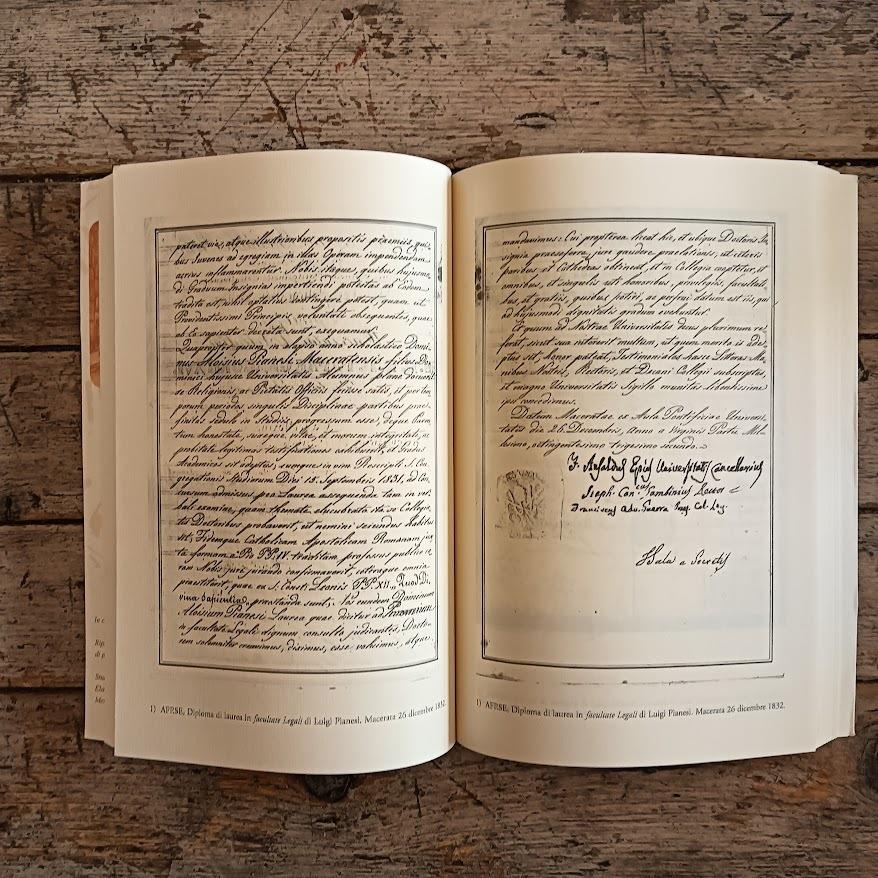 pateret via, atque illustrioribus propositis praemiis, qui-
bus Juvenes ad egregiam in illas Operam impendendam
acrius inflammarentur. Nobis itaque, quibus hujusmo-
di Graduum Insignia impertiendi potestas ab Eodem
tradita est, nihil optatius contingere potest, quam ut
Providentissimi Principis voluntati obsequentes, quae
ab Eo sapienter decreta sunt, exequamur.
Quapropter quum in elapso anno scholastico Domi-
nus Aloisius Pianesi Maceratensis filius Do-
minici hujusce Universitatis Alumnus plane docuerit
se Religionis, ac Pietatis Officiis fecisse satis, et per tem-
porum periodos singulis Disciplinae partibus prae-
finitas sedulo in Studiis progressum esse, deque Parem-
tum honestate, suaeque vitae, et morum integritate, ac
probitate legitimas testificationes exhibuerit, et Gradus
Academicos sit adeptus, cumque in vim Rescripti S. Con-
gregationis Studiorum Dini 18. Septembris 1831, ad Con-
cursum admissus pro Laurea assequenda tam in ver-
bali examine, quam themate elucubrato ita se Collegia-
tis Doctoribus probaverit, ut nemini secundus habitus
sit, Fidemque Catholicam Apostolicam Romanam jux-
ta formam a Pio PP. IV. traditam professus publice co-
ram Nobis jure jurando confirmaverit, ceteraque omnia
praestiterit, quae ex S. Const: Leonis PP. XII. Quod Di-
vina Sapientia, praestanda sunt; Nos eundem Dominum
Aloisium Pianesi Laurea quae dicitur ad Praemium
in facultate Legali dignum consulto judicantes, Docto-
rem solemniter creavimus, diximus, esse voluimus, atque
1) AFRSE, Diploma di laurea in facultate Legali di Luigi Pianesi. Macerata 26 dicembre 1832.
mandavimus: Cui propterea liceat hic, et ubique Doctoris In-
signia praeseferre, jure gaudere praelationis, ut ceteris
paribus et Cathedras obtineat, et in Collegia cooptetur, et
omnibus, et singulis uti honoribus, privilegiis, facultati-
bus, et gratiis, quibus potiri, ac perfrui datum est iis, qui
ad hujusmodi dignitatis gradum evehuntur.
Et quum ad Nostrae Universitatis decus plurimum re-
ferat, sicut sua interest multum, ut quem merita is adep-
ptus sit, honor pateat, Testimoniales hasce Litteras Ma-
nibus Nostris, Rectoris, et Decani Collegii subscriptas,
et magno Universitatis Sigillo munitas libentissime
ipsi concedimus.
Datum Maceratae ex Aula Pontificiae Universi-
tatis die 26. Decembris, Anno a Virginis Partu Mil-
lesimo, octingentesimo trigesimo secundo.
F. Ansaldus Epus Universitatis Cancellarius
Steph. Can.cus Tambinius Rector
Franciscus Adv. Guerra Leg.
a Secretis
1) AFRSE, Diploma di laurea in facultate Legali di Luigi Pianesi. Macerata 26 dicembre 1832.